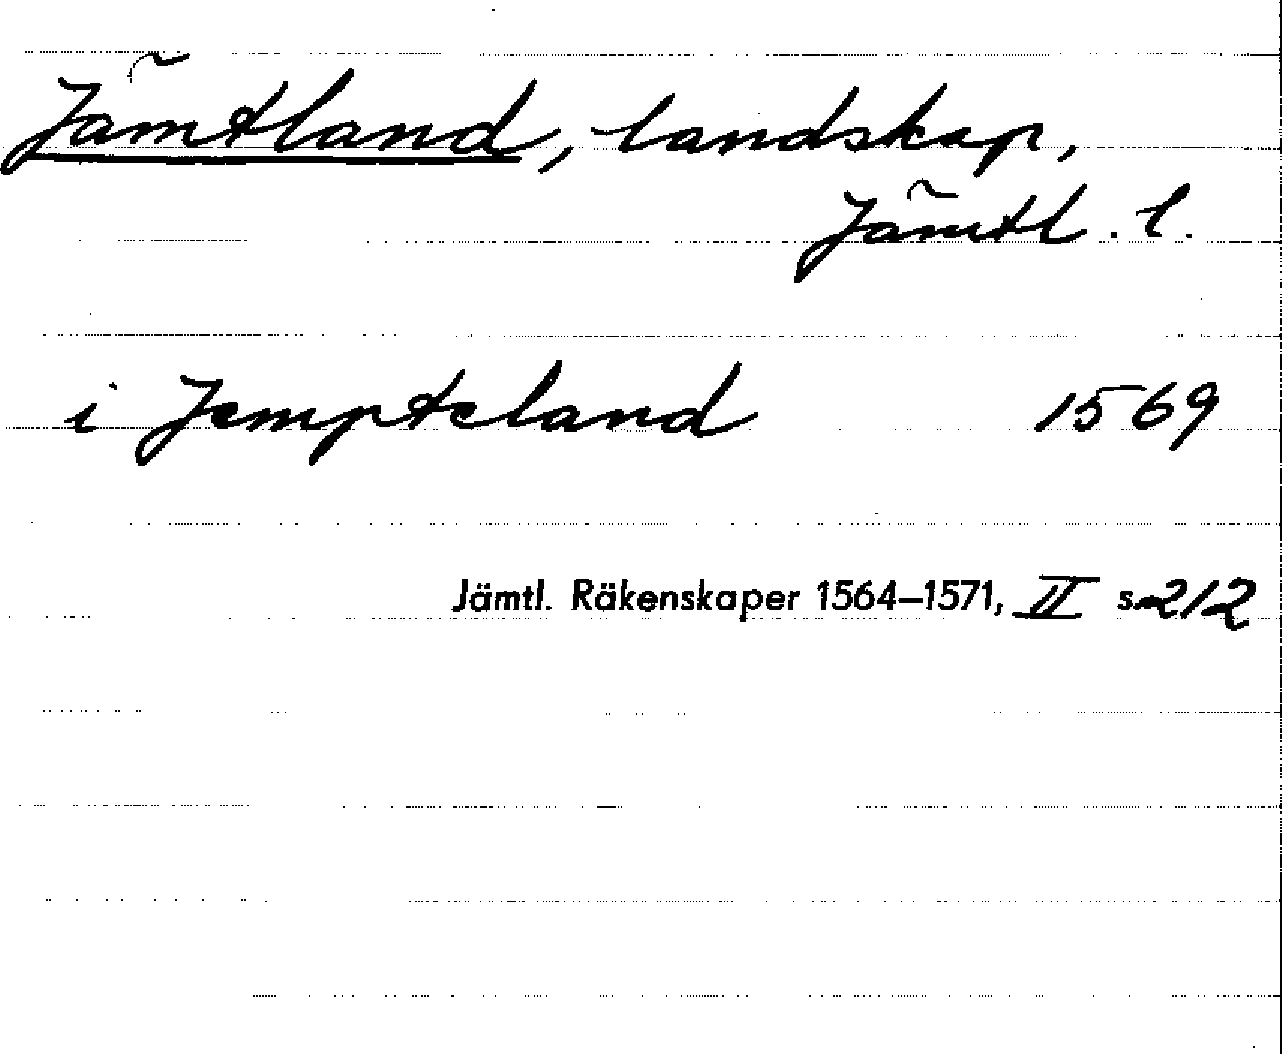 Jämtland, landskap,
Jämtl. l.
i Jempteland 1569
Jämtl. Räkenskaper 1564–1571, II s. 212